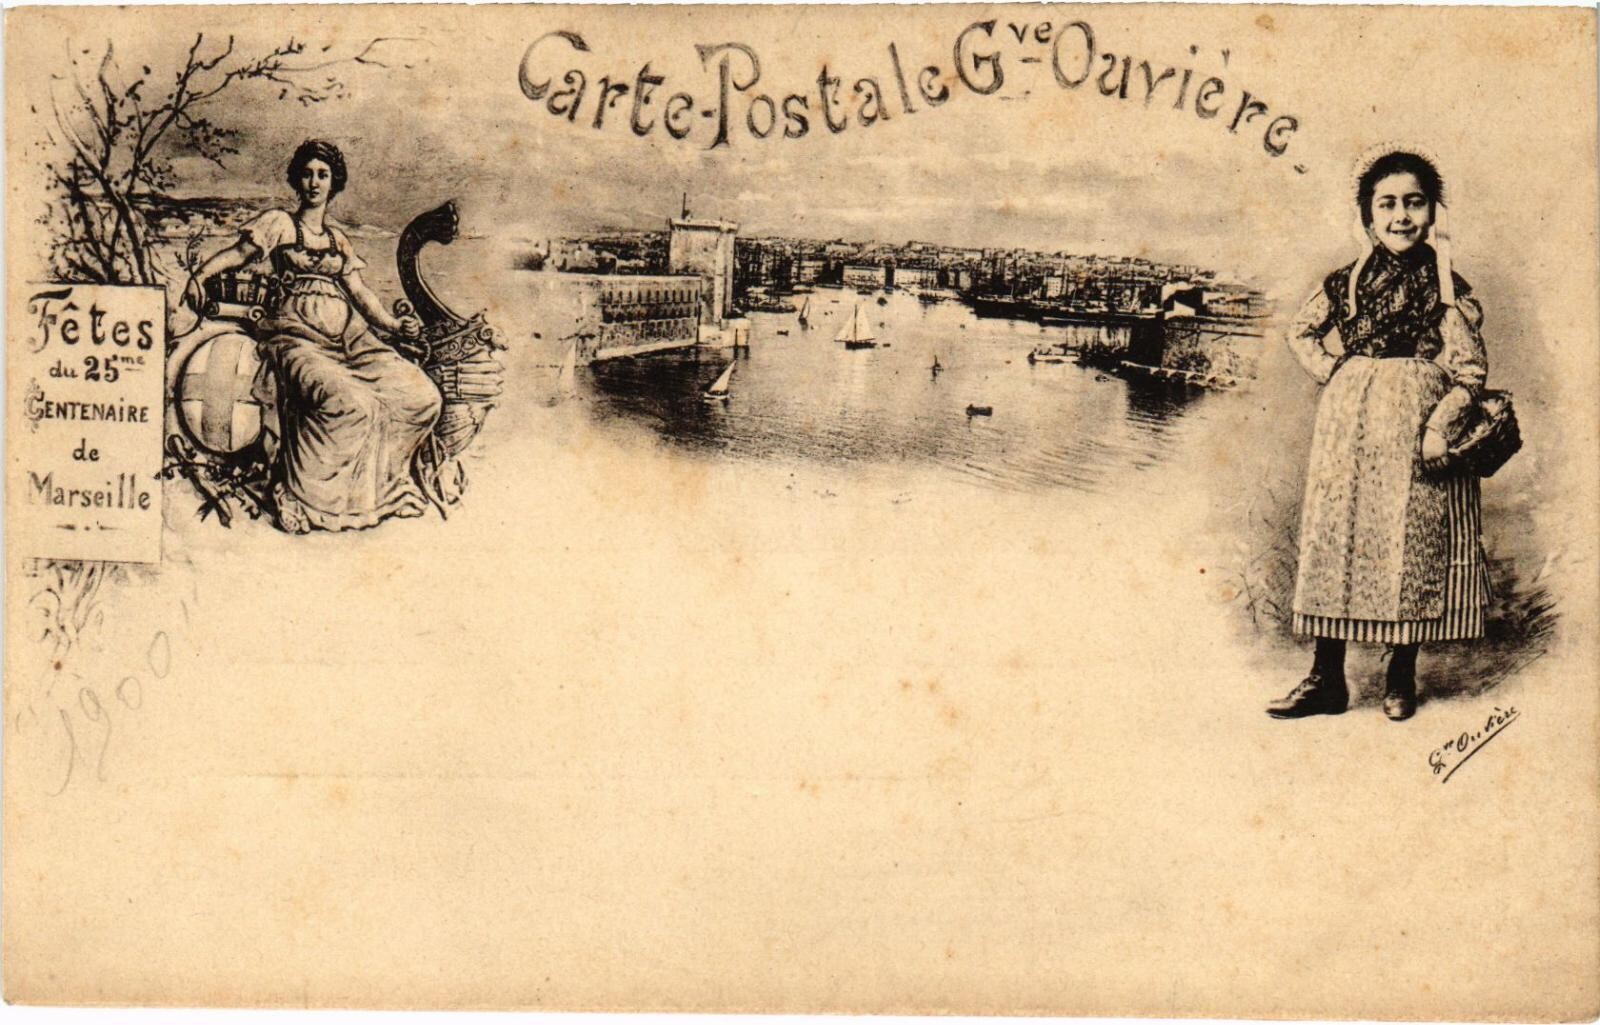 Carte-Postale Gve Ouvière.
Fêtes
du 25me
CENTENAIRE
de
Marseille
1900
Gve Ouvière